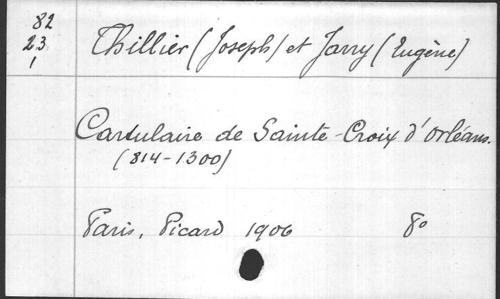 82
23
1
Thillier (Joseph) et Jarry (Eugène)
Cartulaire de Sainte-Croix d'Orléans.
(814-1300)
Paris, Picard 1906 8°